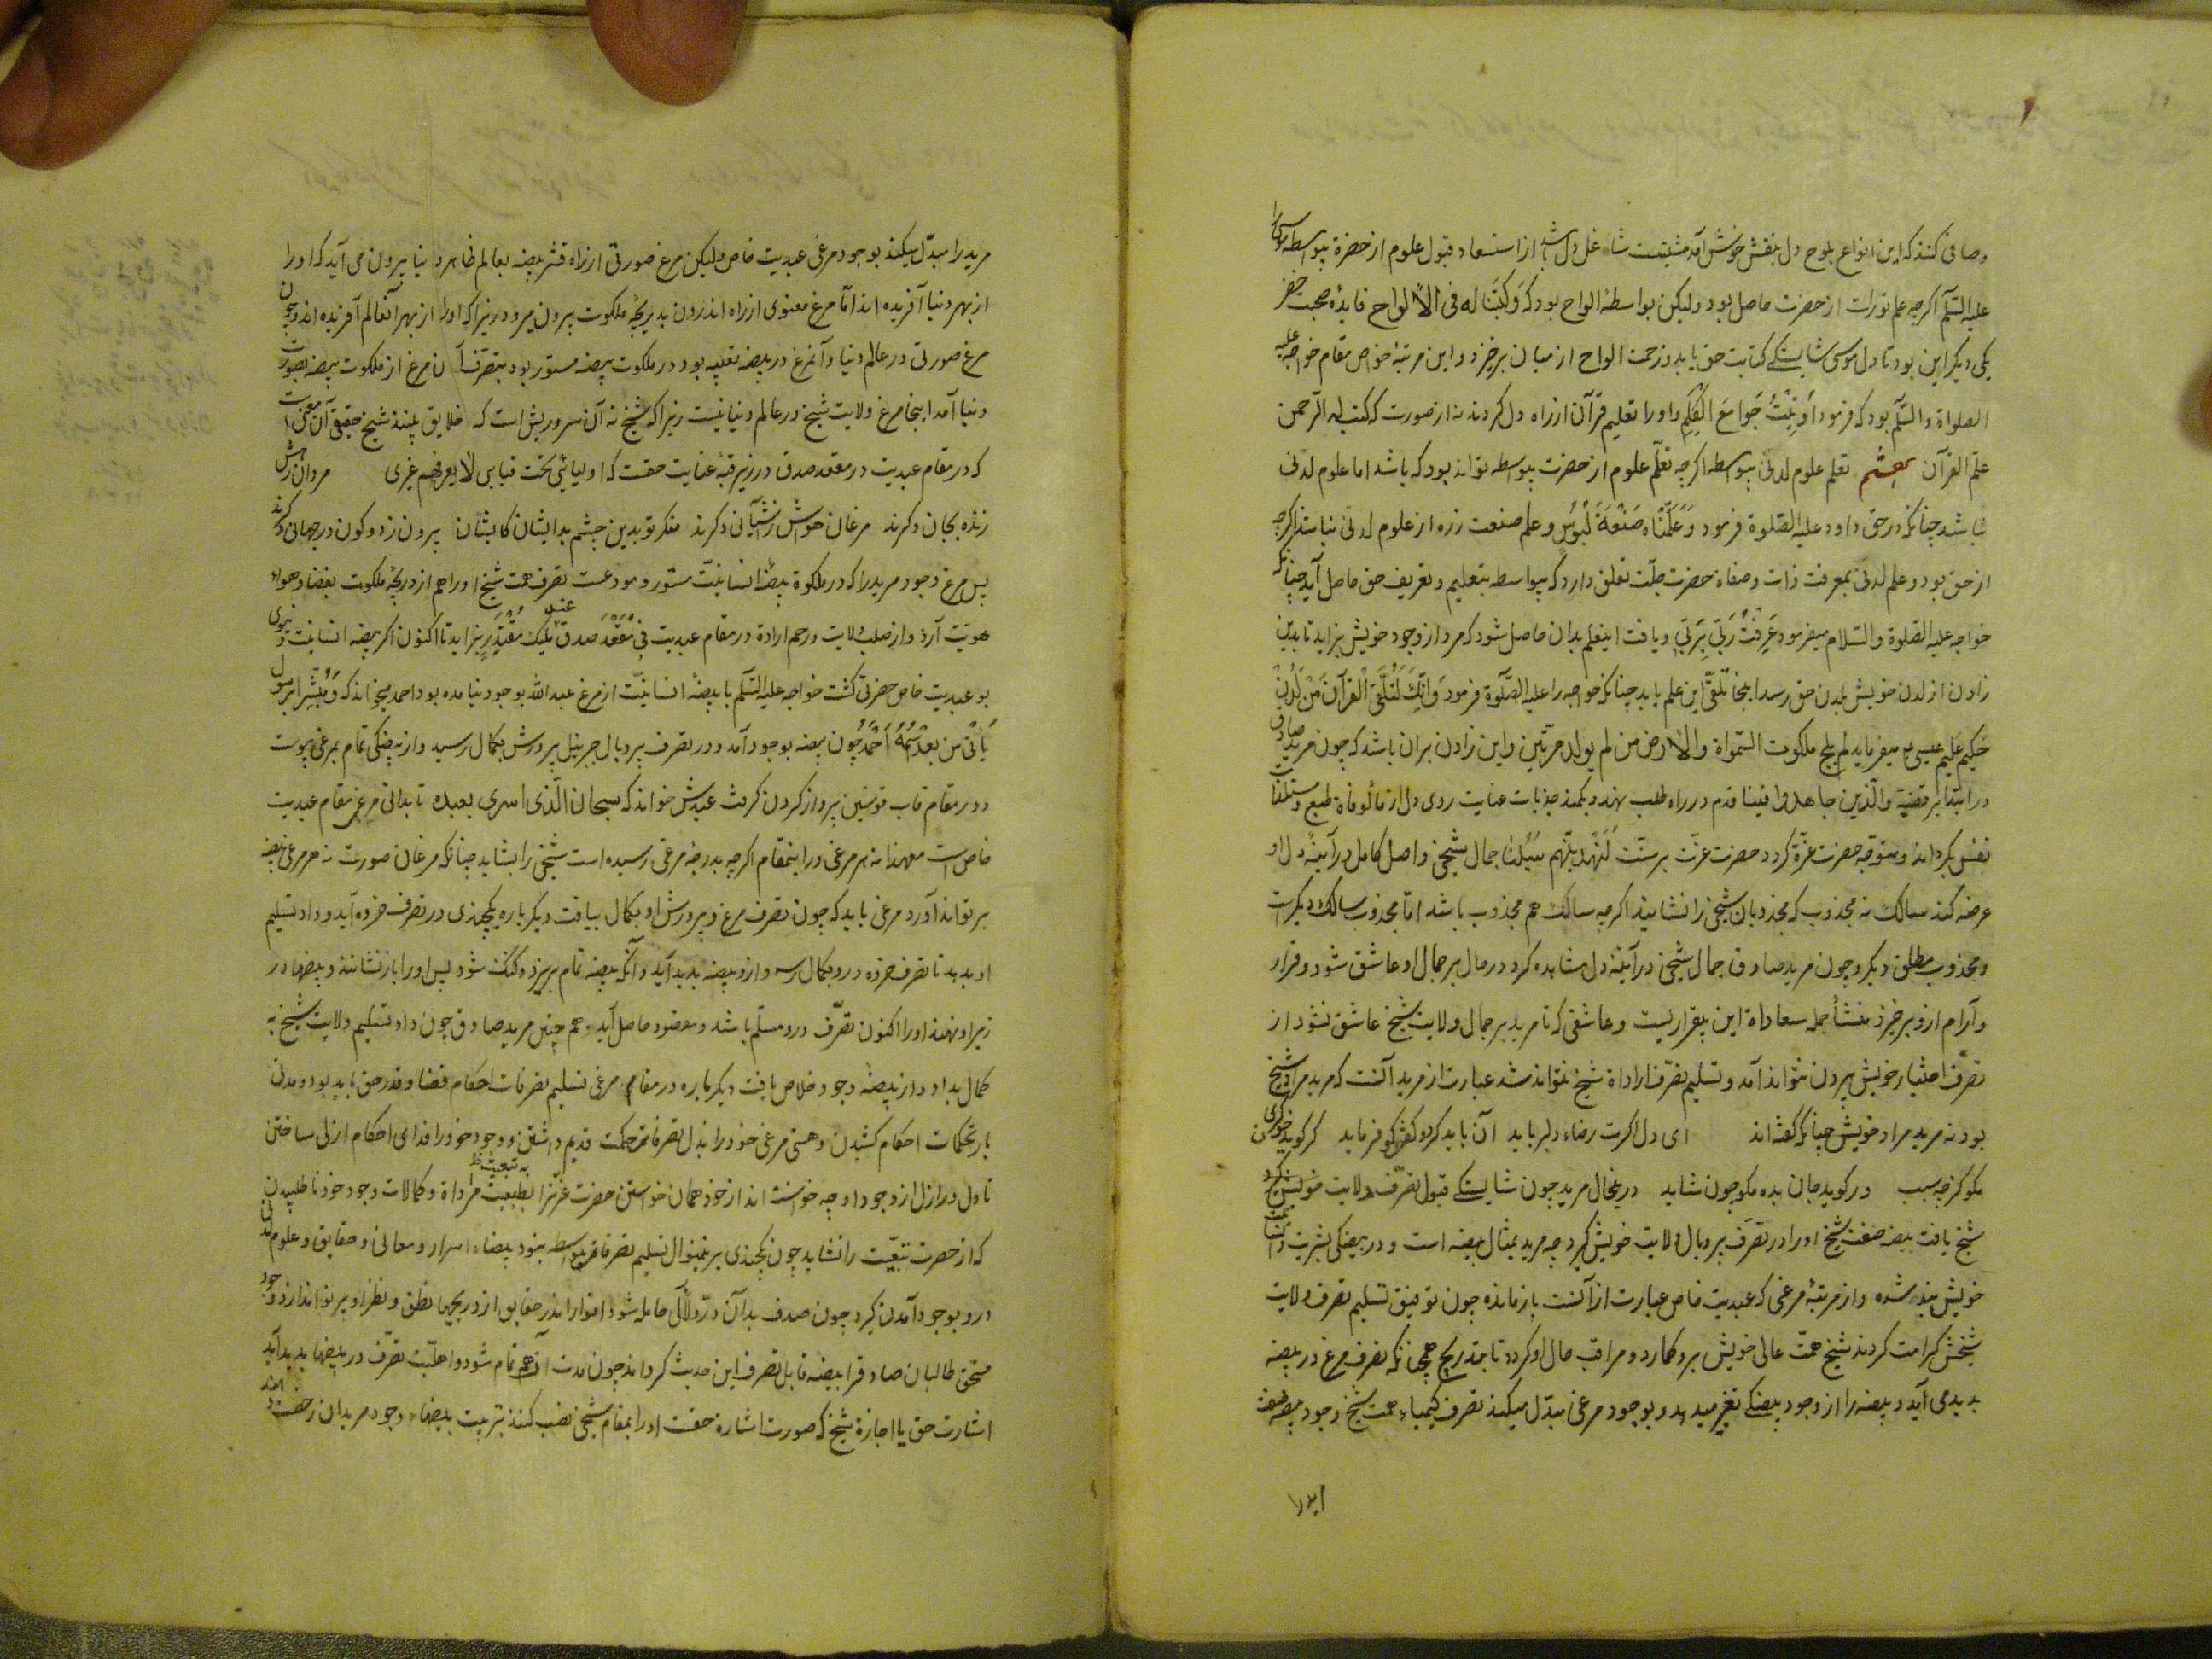 و صافی کند که این انواع بلوح دل بنقش خوش آمد مثبتست شاغل دل باشد از استعداد قبول علوم از حضرة بیواسطه موسی را
علیه السّلم اکرچه علم تورات از حضرت حاصل بود ولیکن بواسطهٔ الواح بود که وَکَتَبْنا له فی الألواح فایدهٔ صحبت خضر
یکی دیکر این بود تا دل موسی شایستکی کتابت حق یابد و زحمت الواح از میان برخیزد و این مرتبهٔ خواص مقام خواجه علیه
الصلواة والسّلم بود که فرمود اُوتیْتُ جَوامِعَ الْکَلِم و او را تعلیم قرآن از راه دل کردند نه از صورت که کتب له الرّحمن
علّم القرآن پنجم تعلم علوم لدنی بیواسطه اکرچه تعلّم علوم از حضرت بیواسطه تواند بود که باشد اما علوم لدنی
نباشد چنانکه در حق داود علیه الصّلوة فرمود وَعَلَّمْناه صَنْعَةَ لَبُوْسٍ و علم صنعت زره از علوم لدنی نباشد اکرچه
از حق بود و علم لدنی بمعرفت ذات و صفاة حضرت جلّت تعلق دارد که بیواسطه بتعلیم و تعریف حق حاصل آید چنانکه
خواجه علیه الصّلوة والسّلام میفرمود عَرِفْتُ رَبّی بِرَبّی و یافت اینعلم بدان حاصل شود که مرد از وجود خویش بزاید تا بدین
زادن از لدن خویش بلدن حق رسد اینجا تلقّی این علم یابد چنانکه خواجه را علیه الصّلوة فرمود وَاِنَّکَ لَتُلَقَّی الْقرآنَ مَنْ لَدُنْ
حَکیم عَلیم عیسی ع میفرماید لم یلج ملکوت السّمواة والارض من لم یولد مرّتین و این زادن بران باشد که چون مرید صادق
در ابتدا بر قضیّهٔ والّذین جاهدوا فینا قدم در راه طلب نهد و بکمند جذبات عنایت روی دل از مألوفاة طبع و مستلذّات
نفس بکرداند و متوجّه حضرت عزّة کردد حضرت عزّت بر سنّت لَنَهْدِیَنّهم سُبُلَنا جمال شیخی واصل کامل در آینهٔ دل او
عرضه کند سالک نه مجذوب که مجذوبان شیخی را نشایند اکرچه سالک هم مجذوب باشد امّا مجذوب سالک دیکر است
و مجذوب مطلق دیکر و چون مرید صادق جمال شیخی در آینهٔ دل مشاهده کرد در حال بر جمال او عاشق شود و قرار
و آرام ازو برخیزد منشأ جمله سعاداة این بیقراریست و عاشقی که تا مرید بر جمال ولایت شیخ عاشق نشود از
تصرّف اختیار خویش بیرون نتواند آمد و تسلیم تصرّف اراداة شیخ نتواند شد عبارت از مرید آنست که مرید مراد شیخ
بود نه مرید مراد خویش چنانکه کفته‌اند ای دل اکرت رضاء دلبر باید آن باید کرد و کفت کو فرماید کر کوید خون کری
مکو کز چه سبب ور کوید جان بده مکو چون شاید درینحال مرید چون شایستکی قبول تصرّف ولایت خویش کرد
شیخ یافت بیضه صفت شیخ او را در تصرّف پر و بال ولایت خویش کیرد چه مرید بمثال بیضه است و در بیضکی بشریت و انسانیت
خویش بند شده و از مرتبهٔ مرغی که عبدیت خاص عبارت از آنست بازمانده چون توفیق تسلیم تصرف ولایت
شیخش کرامت کردند شیخ همّت عالی خویش برو کمارد و مراقب حال او کردد تا بتدریج همچنانکه تصرف مرغ در بیضه
بدید می آید و بیضه را از وجود بیضکی تغیر میدهد و بوجود مرغی مبدّل میکند تصرف کیمیاء همت شیخ وجود بیضه صفت
مرید را مبدّل میکند بوجود مرغی عبدیت خاص ولیکن مرغ صورتی از راه قشر بیضه بعالم ظاهر دنیا بیرون می آید که او را
از بهر دنیا آفریده اند امّا مرغ معنوی از راه اندرون بدریچهٔ ملکوت بیرون میرود زیرا که او را از بهر آنعالم آفریده اند و چون
مرغ صورتی در عالم دنیا و آنمرغ در بیضه تعبیه بود در ملکوت بیضه مستور بود بتصرّف آن مرغ از ملکوت بیضه بصورت
دنیا آمد اینجا مرغ ولایت شیخ در عالم دنیا نیست زیرا که شیخ نه آن سر و ریش است که خلایق بینند شیخ حقیقی آن معنی است
که در مقام عبدیت در مقعد صدق در زیر قبّهٔ عنایت حقست که اولیائی تحت قبابی لا یعرفهم غیری مردان رهش
زنده بجان دکرند مرغان هوش زآشیانی دکرند منکر تو بدین چشم بدایشان کایشان بیرون ز دو کون در جهانی دکرند
پس مرغ وجود مرید را که در ملکوة بیضهٔ انسانیّت مستور و مودعست تصرف همت شیخ او را هم از دریچهٔ ملکوت بفضاء هواء
هویّت آرد و از صلب ولایت و رحم ارادة در مقام عبدیت فی مَقْعَدَ صدق عند ملیک مقتدر بزاید تا اکنون اکر بیضه انسانیت دنیوی
بو عبدیت خاص حضرتی کشت خواجه علیه السّلم با بیضهٔ انسانیّت از مرغ عبد الله بوجود نیامده بود احمد میخواندکه وَمُبَشِّراً برسول
یَأْتی من بعدی اسْمُهُ اَحْمَد چون بیضه بوجود آمد و در تصرف پر و بال جبرئیل پرورش بکمال رسید و از بیضکی تمام بمرغی پیوست
و در مقام قاب قوسین پرواز کردن کرفت عبدش خواند که سبحان الّذی اسری بعبده تا بدانی مرغی مقام عبدیت
خاص است معهذا نه هر مرغی در اینمقام اکرچه بدرجهٔ مرغی رسیده است شیخی را بشاید چنانکه مرغان صورت نه هر مرغی بیضه
بر تواند آورد مرغی باید که چون تصرف مرغ و پرورش او بکمال بیافت دیکر باره یکچندی در تصرف خروه آید و داد تسلیم
او بدهد تا تصرف خروه درو بکمال رسد و ازو بیضه بدید آید و آنکه بیضه تمام بریزد و کنک شود پس او را باز نشانند و بیضها در
زیر او نهند او را اکنون تصّرف درو مسلّم باشد و مقصود حاصل آید همچنین مرید صادق چون داد تسلیم ولایت شیخ به
کمال بداد و از بیضهٔ وجود خلاص یافت دیکر باره در مقام مرغی تسلیم تصرفات احکام قضا و قدر حق باید بود و مدتی
بار تحکمات احکام کشیدن و هستی مرغی خود را بذل تصرفات حکمت قدیم داشتن و وجود خود را فدای احکام ازلی ساختن
تا دل در ازل از وجود او چه خواسته اند از خود همان خواستن حضرت عزّت را بطبیعت مراداة و کمالات وجود خود نا طلبیدن
به تبعیت ظ
که از حضرت تبعیّت را نشاید چون یکچندی برینمنوال تسلیم تصرفات بیواسطه بنود بیضاء اسرار و معانی و حقایق و علوم لدنی
درو بوجود آمدن کیرد چون صدف بدان درّ و لآلی حامله شود انوار اندر حقایق از دریچهاء نطق و نظر او پرتو اندازد وجود
مستحق طالبان صادقرا بیضه قابل تصرف این حدیث کرداند چون مدت آن هم تمام شود و اهلیّت تصرّف در بیضها پدید آید
اشارت حق یا اجازة شیخ که صورت اشارة حقست او را بمقام شیخی نصب کنند بتربیت بیضهاء وجود مریدان رخصت دهند